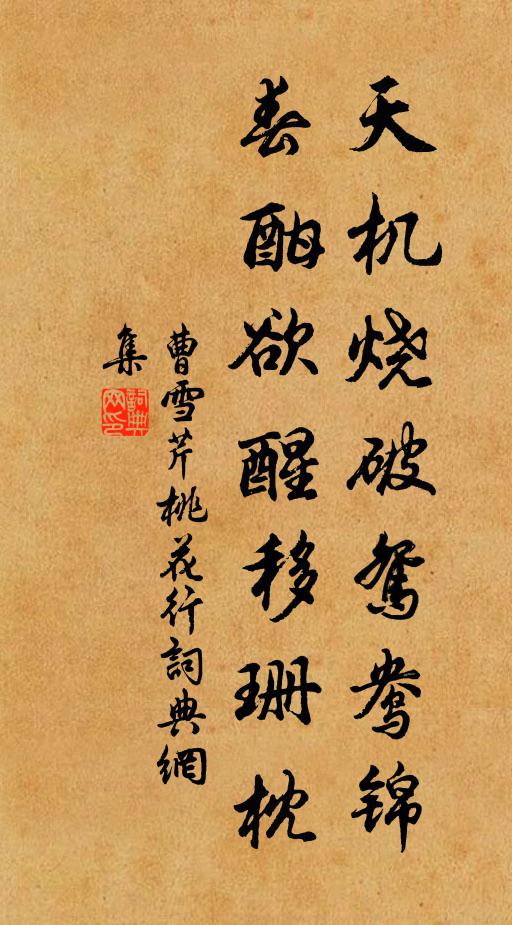 天机烧破鸳鸯锦
春酣欲醒移珊枕
曹雪芹桃花行詞典網
集
詞典網印